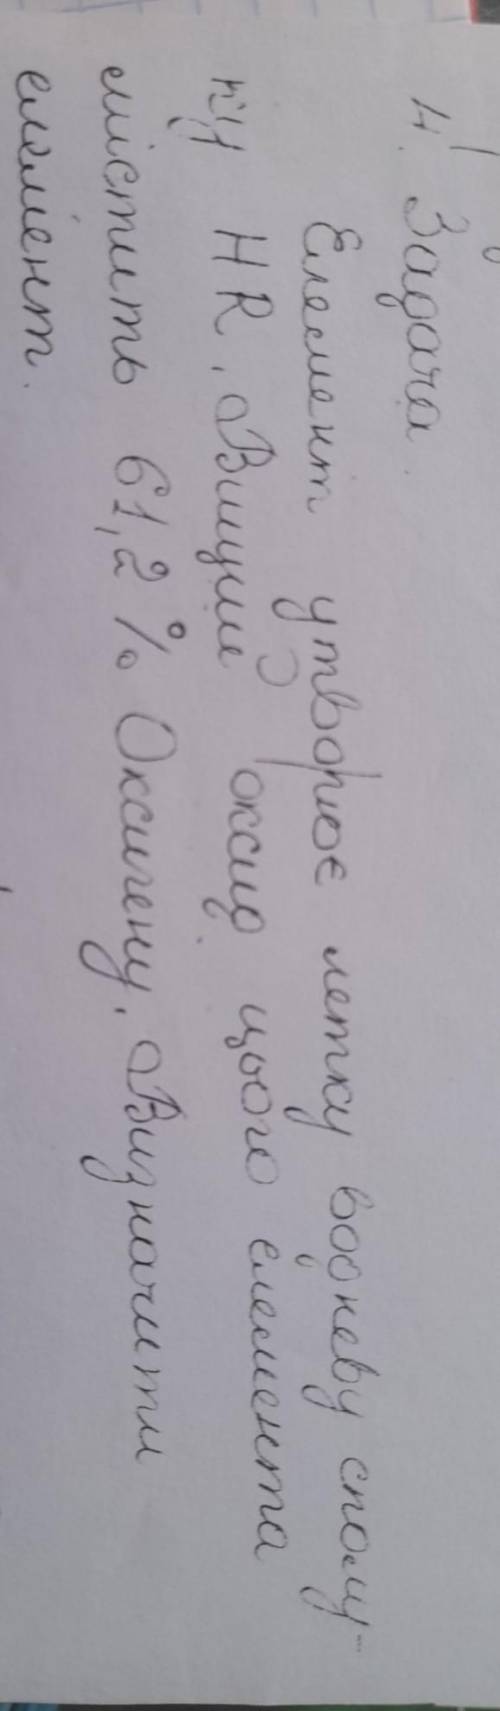 4. Задача.
Елемент утворює летку водневу сполу-
ку HR. Вищий оксид цього елемента
містить 61,2 % Оксигену. Визначити
елемент.